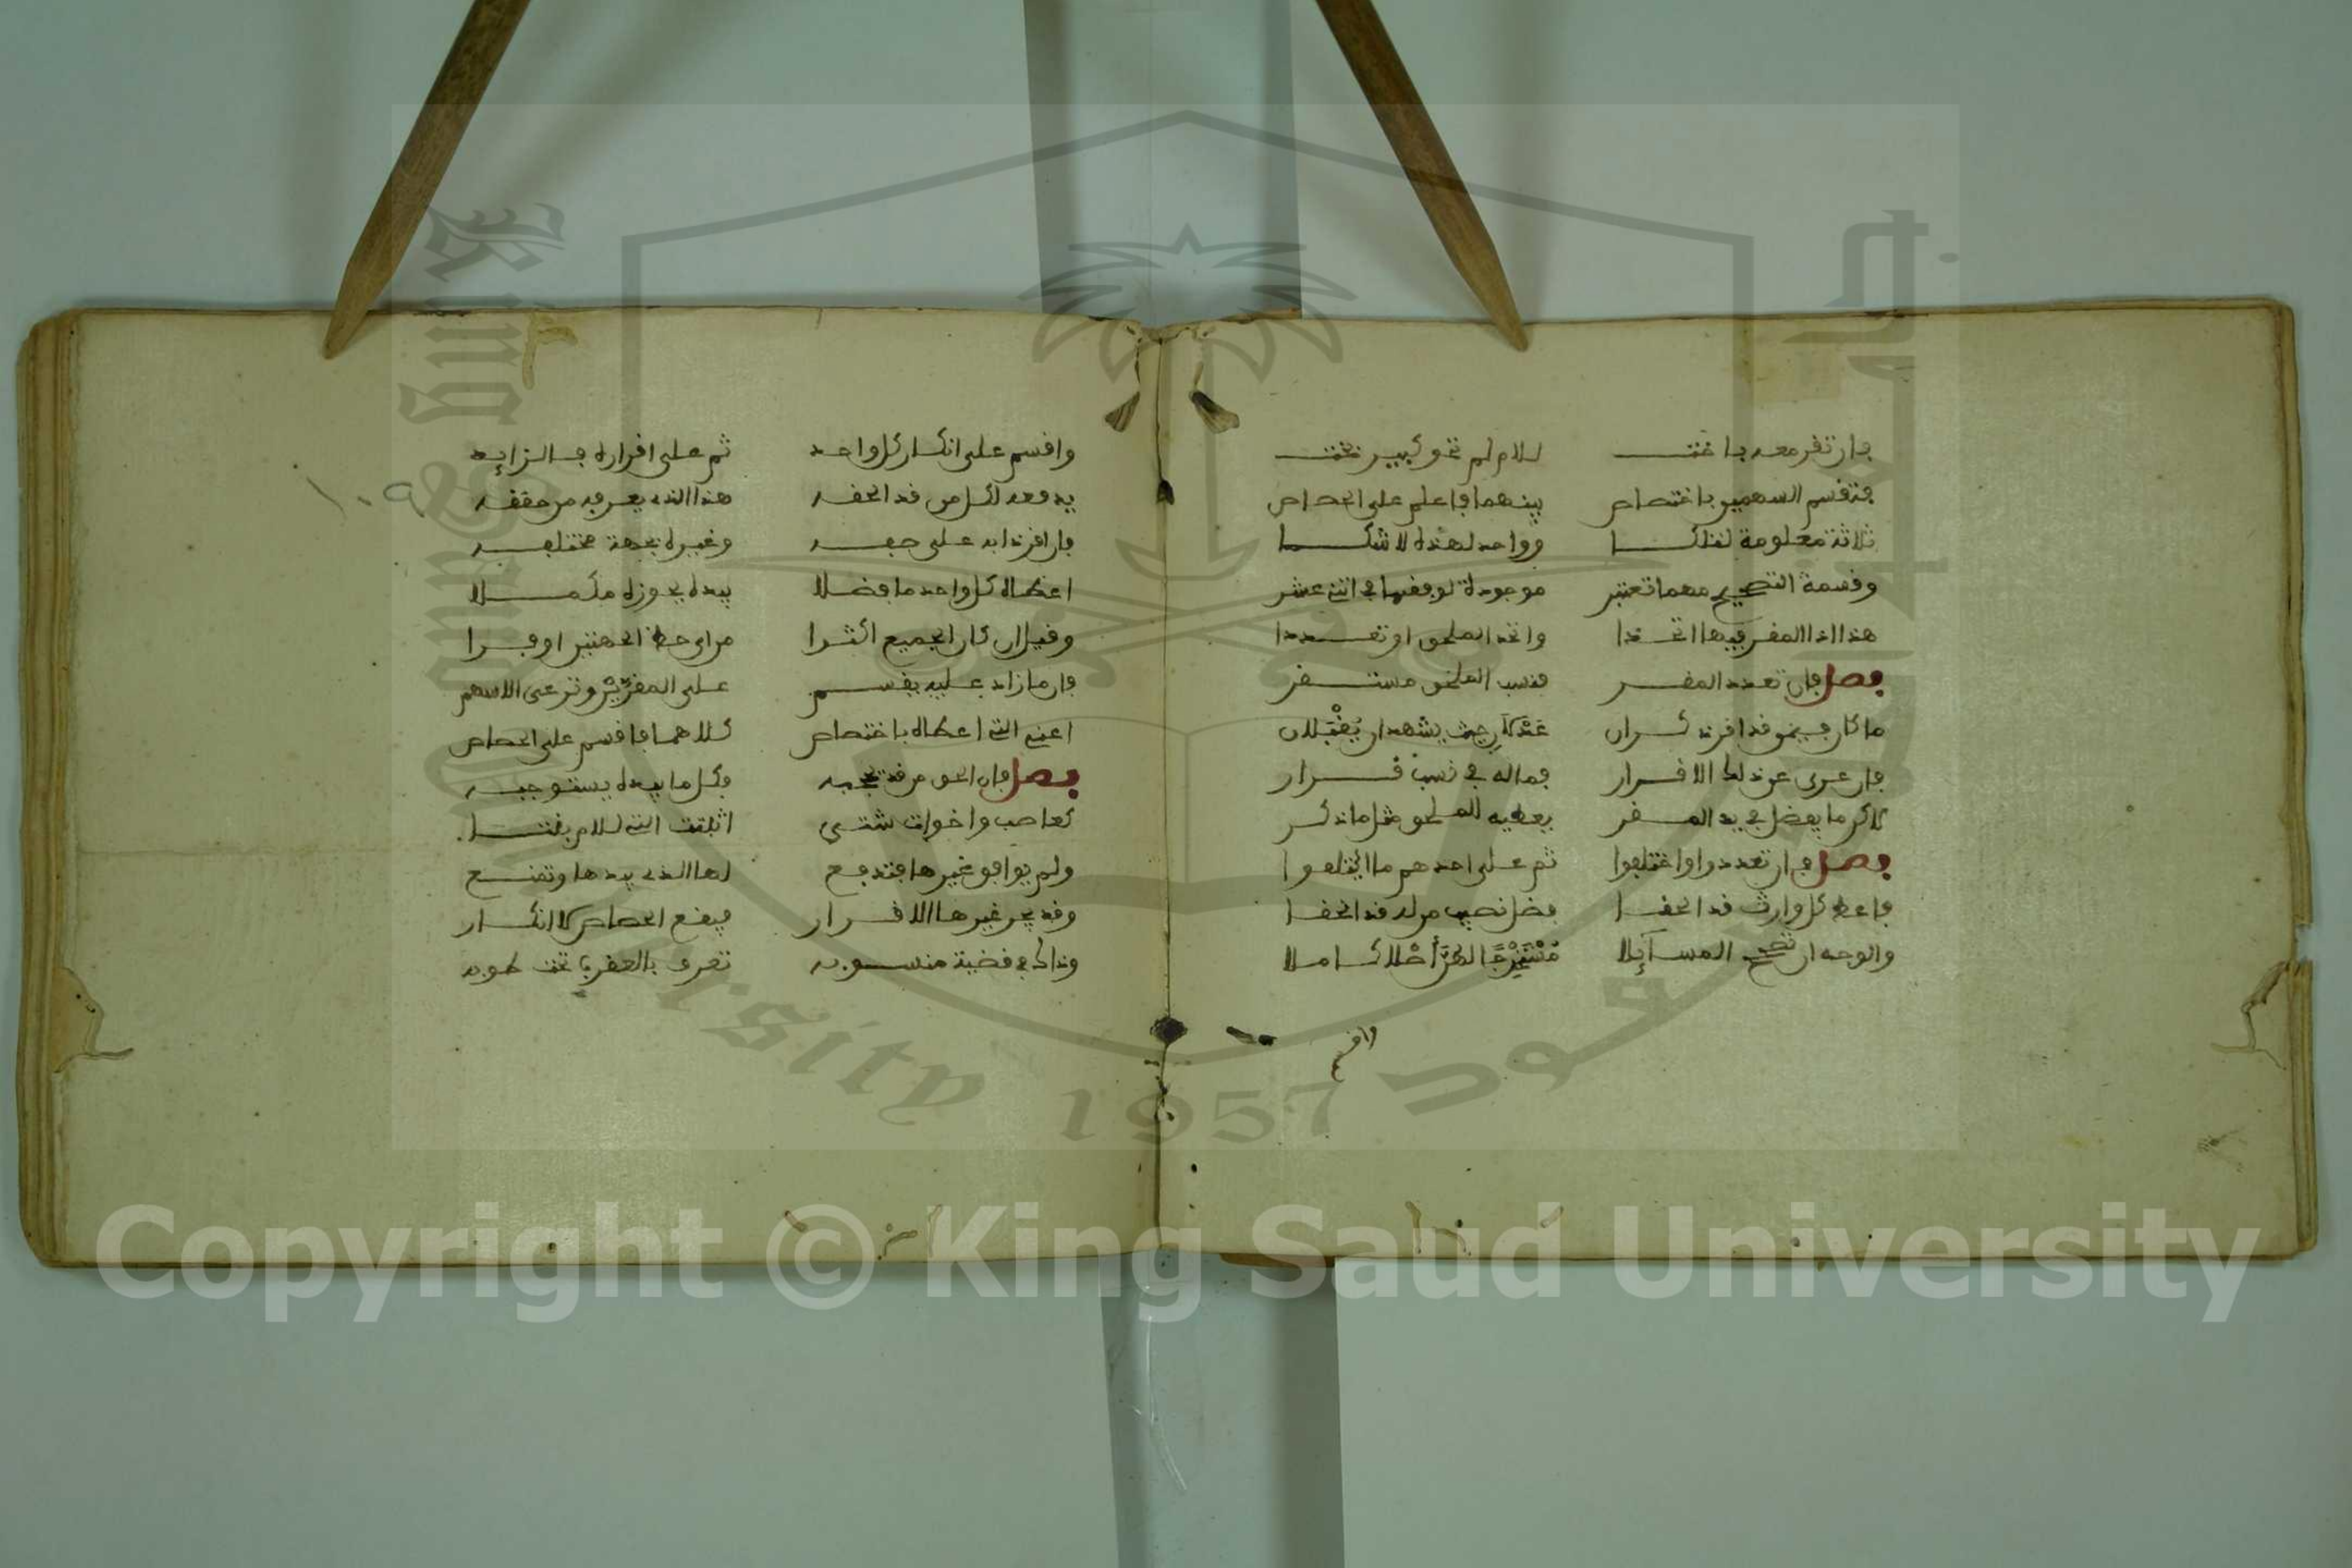 فإن تقر معه باخت للام لم تحو كبير تخت
فتقسم السهمين باختصاص بينهما فاعلم على الحصاص
ثلاثة معلومة لتلكا وواحد لهذه لا شكا
وقسمة التصحيح مهما تعتبر موجودة لوفقها في اثني عشر
هذا اذا المقر فيها اتحدا واتحد الملحق او تعددا
فصل وان تعدد المقر فنسب الملحق مستقر
ما كان فيمن قد اقر ذكران عدلان حيث يشهدان يقبلان
فان عرى عن ذلك الاقرار فماله في نسب قرار
لاكن ما يفضل في يد المقر يعطيه للملحق مثل ما ذكر
فصل وان تعددوا واختلفوا ثم على احدهم ما ايتلفوا
فاعط كل وارث قد الحقا فضل نصيب من له قد الحقا
والوجه ان تصحح المسآيلا مستخرجا لهن اصلا كاملا
واقسم
واقسم على انكار كل واحد ثم على اقراره بالزايد
يدفعه لكل من قد الحقه هذا الذي يعرفه من حققه
فان اقر ذا به على حفه وغيره بجهة مختلفه
اعطاه كل واحد ما فضلا بيده يحوزه مكملا
وقيل ان كان الجميع اكثرا من اي حظ الجهتين اوفرا
فان ما زاد عليه يقسم على المقرين وترعى الاسهم
اعني التي اعطاه باختصاص كلاهما فاقسم على الحصاص
فصل وان الحق من قد تحجبه فكل ما بيده يستوجبه
كعاصب واخوات شتى اثبتت التي للام بنتا
ولم يوافق غيرها فتدفع لها الذي بيدها وتمنع
وقد يجر غيرها الاقرار فيقع الحصاص كالانكار
وذاك في قضية منسوبه تعرف بالعقرب تحت طوبه
١٠٩
Copyright © King Saud University
King Saud University 1957